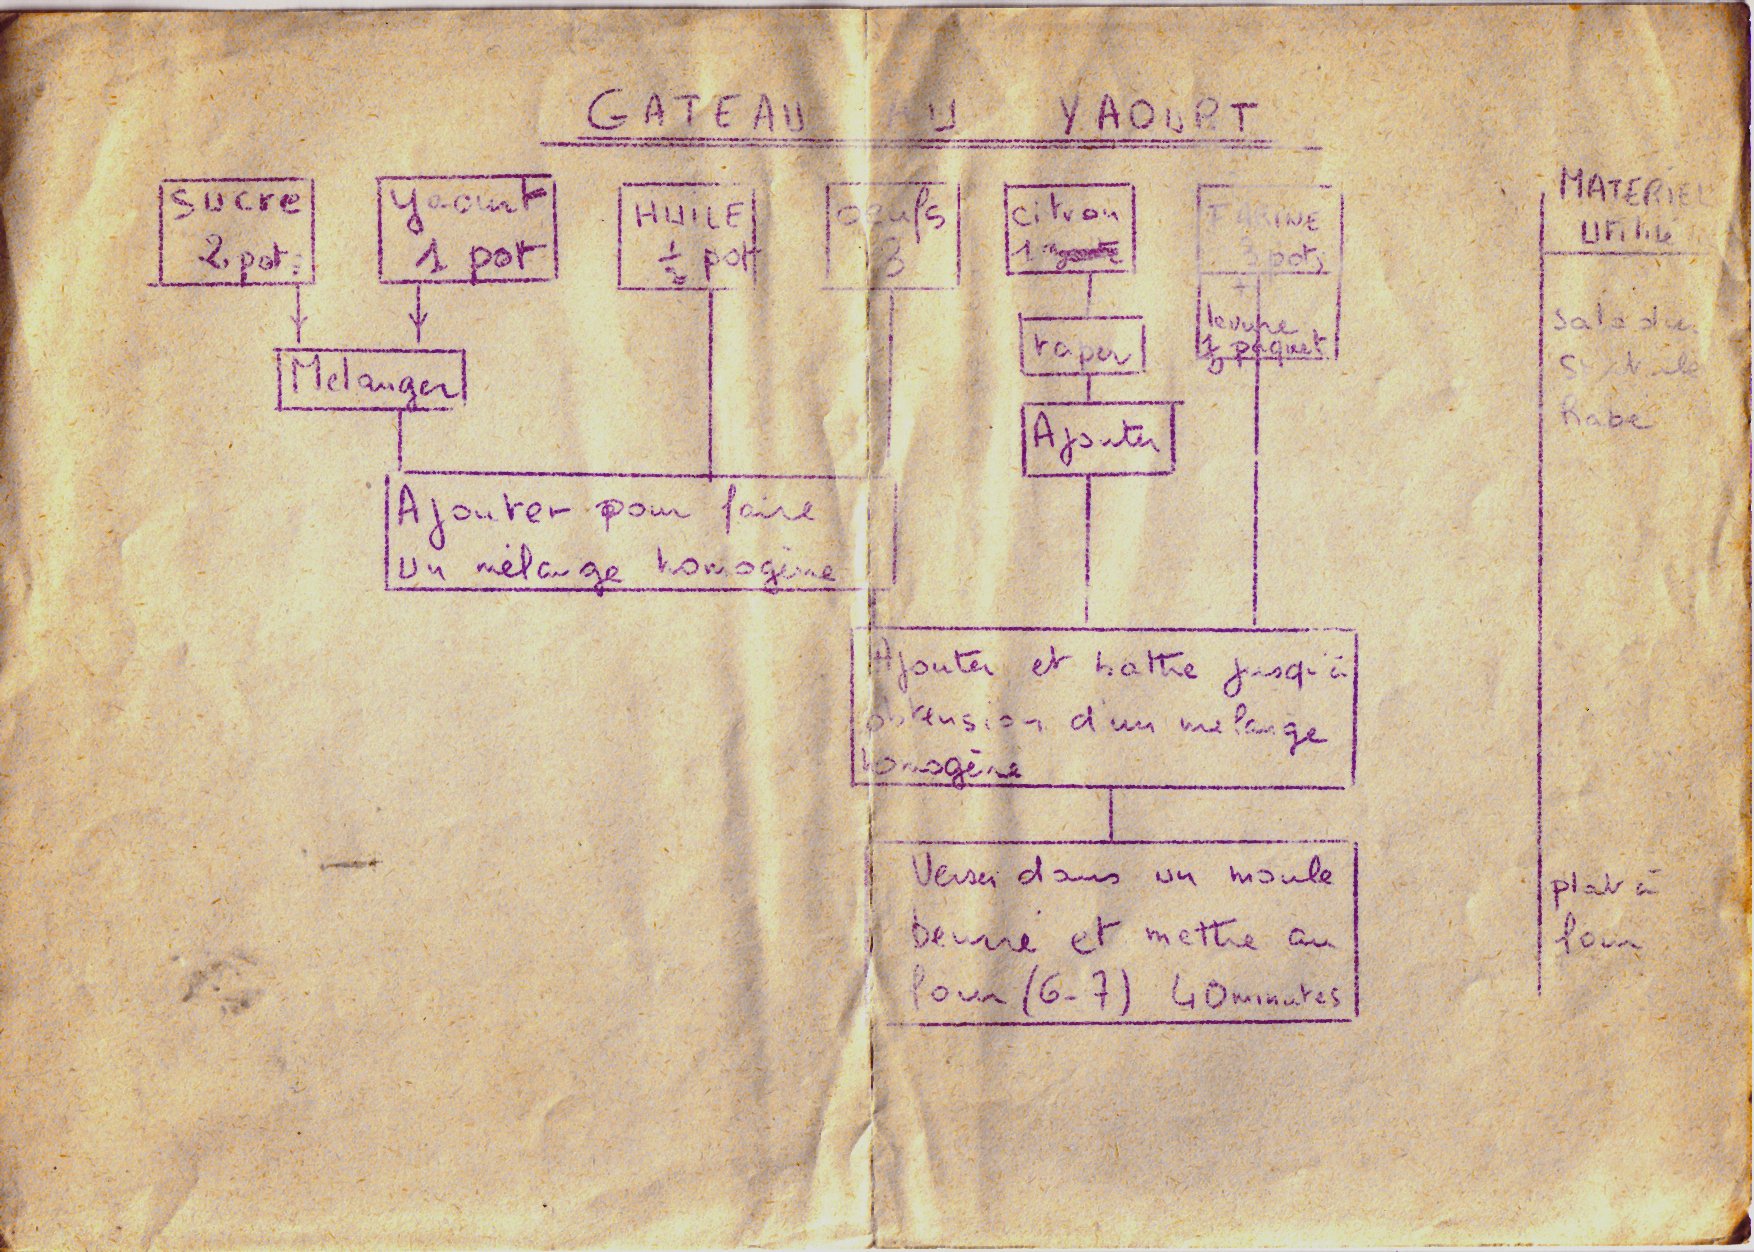 GATEAU AU YAOURT
Sucre
2 pots
Yaourt
1 pot
HUILE
1/2 pot
oeufs
3
citron
1
FARINE
3 pots
+
levure
paquet
raper
Ajouter
Melanger
Ajouter pour faire
un mélange homogène
Ajouter et battre jusqu'à
obtension d'un melange
homogène
Verser dans un moule
beurré et mettre au
four (6-7) 40 minutes
MATERIEL
utilisé
saladier
spatule
Rape
plat à
four